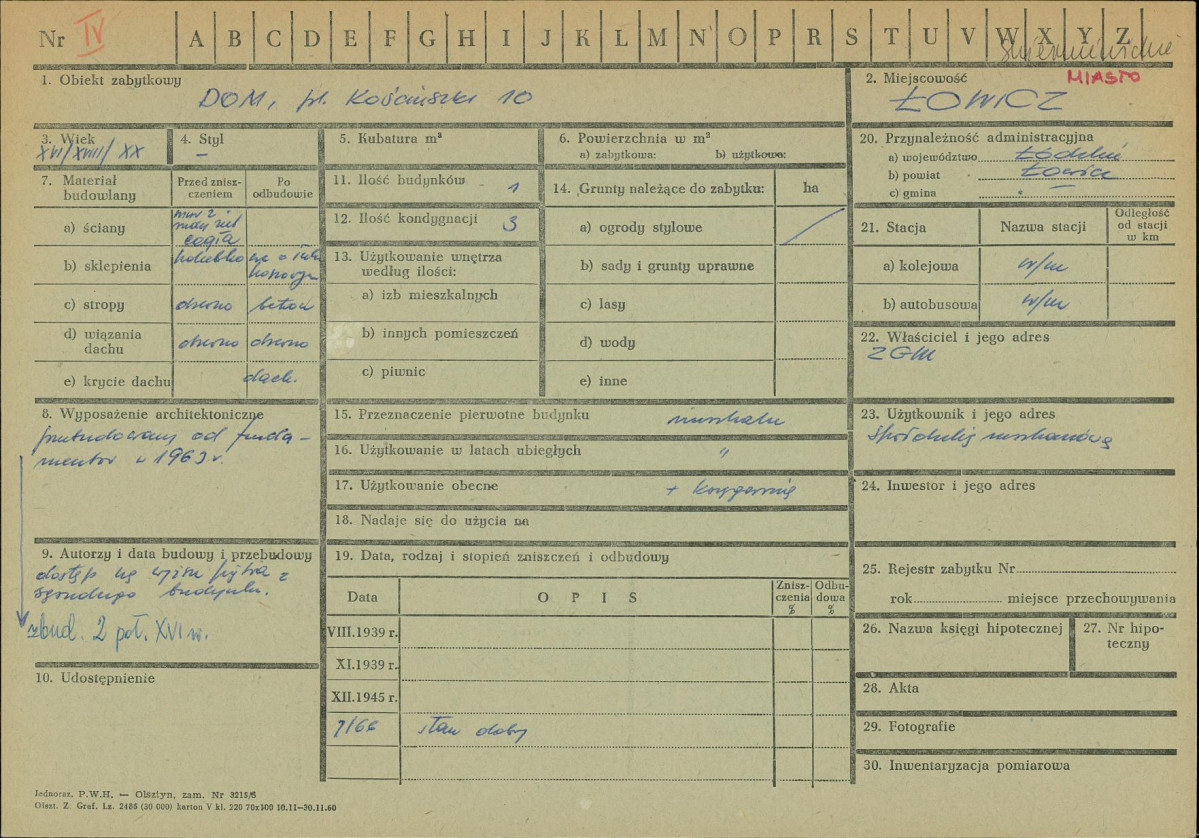 Nr IV A B C D E F G H I J K L M N O P R S T U V W X Y Z
1. Obiekt zabytkowy
DOM, pl. Kościuszki 10
2. Miejscowość
MIASTO
ŁOWICZ
3. Wiek
XVI/XVIII/XX
4. Styl
–
5. Kubatura m³
6. Powierzchnia w m²
a) zabytkowa: b) użytkowa:
7. Materiał budowlany
Przed zniszczeniem
Po odbudowie
a) ściany
cegła
b) sklepienia
kolebko
c) stropy
drewno
beton
d) wiązania dachu
drewno
drewno
e) krycie dachu
dach.
8. Wyposażenie architektoniczne
przebudowany od funda-
mentów w 1963 r.
9. Autorzy i data budowy i przebudowy
dostęp na piętra z
budynku.
zbud. 2 poł. XVI w.
10. Udostępnienie
11. Ilość budynków 1
12. Ilość kondygnacji 3
13. Użytkowanie wnętrza według ilości:
a) izb mieszkalnych
b) innych pomieszczeń
c) piwnic
14. Grunty należące do zabytku: ha
a) ogrody stylowe
b) sady i grunty uprawne
c) lasy
d) wody
e) inne
15. Przeznaczenie pierwotne budynku
16. Użytkowanie w latach ubiegłych "
17. Użytkowanie obecne + księgarnia
18. Nadaje się do użycia na
19. Data, rodzaj i stopień zniszczeń i odbudowy
Data
O P I S
Zniszczenia %
Odbudowa %
VIII.1939 r.
XI.1939 r.
XII.1945 r.
7/66 stan dobry
20. Przynależność administracyjna
a) województwo Łódzkie
b) powiat Łowicz
c) gmina "
21. Stacja
Nazwa stacji
Odległość od stacji w km
a) kolejowa w/m
b) autobusowa w/m
22. Właściciel i jego adres
ZGM
23. Użytkownik i jego adres
Spółdzielnia mieszkaniowa
24. Inwestor i jego adres
25. Rejestr zabytku Nr
rok miejsce przechowywania
26. Nazwa księgi hipotecznej
27. Nr hipoteczny
28. Akta
29. Fotografie
30. Inwentaryzacja pomiarowa
Jednoraz. P.W.H. — Olsztyn, zam. Nr 3215/5
Olszt. Z. Graf. Lz. 2486 (30 000) karton V kl. 220 70x100 10.11—30.11.60